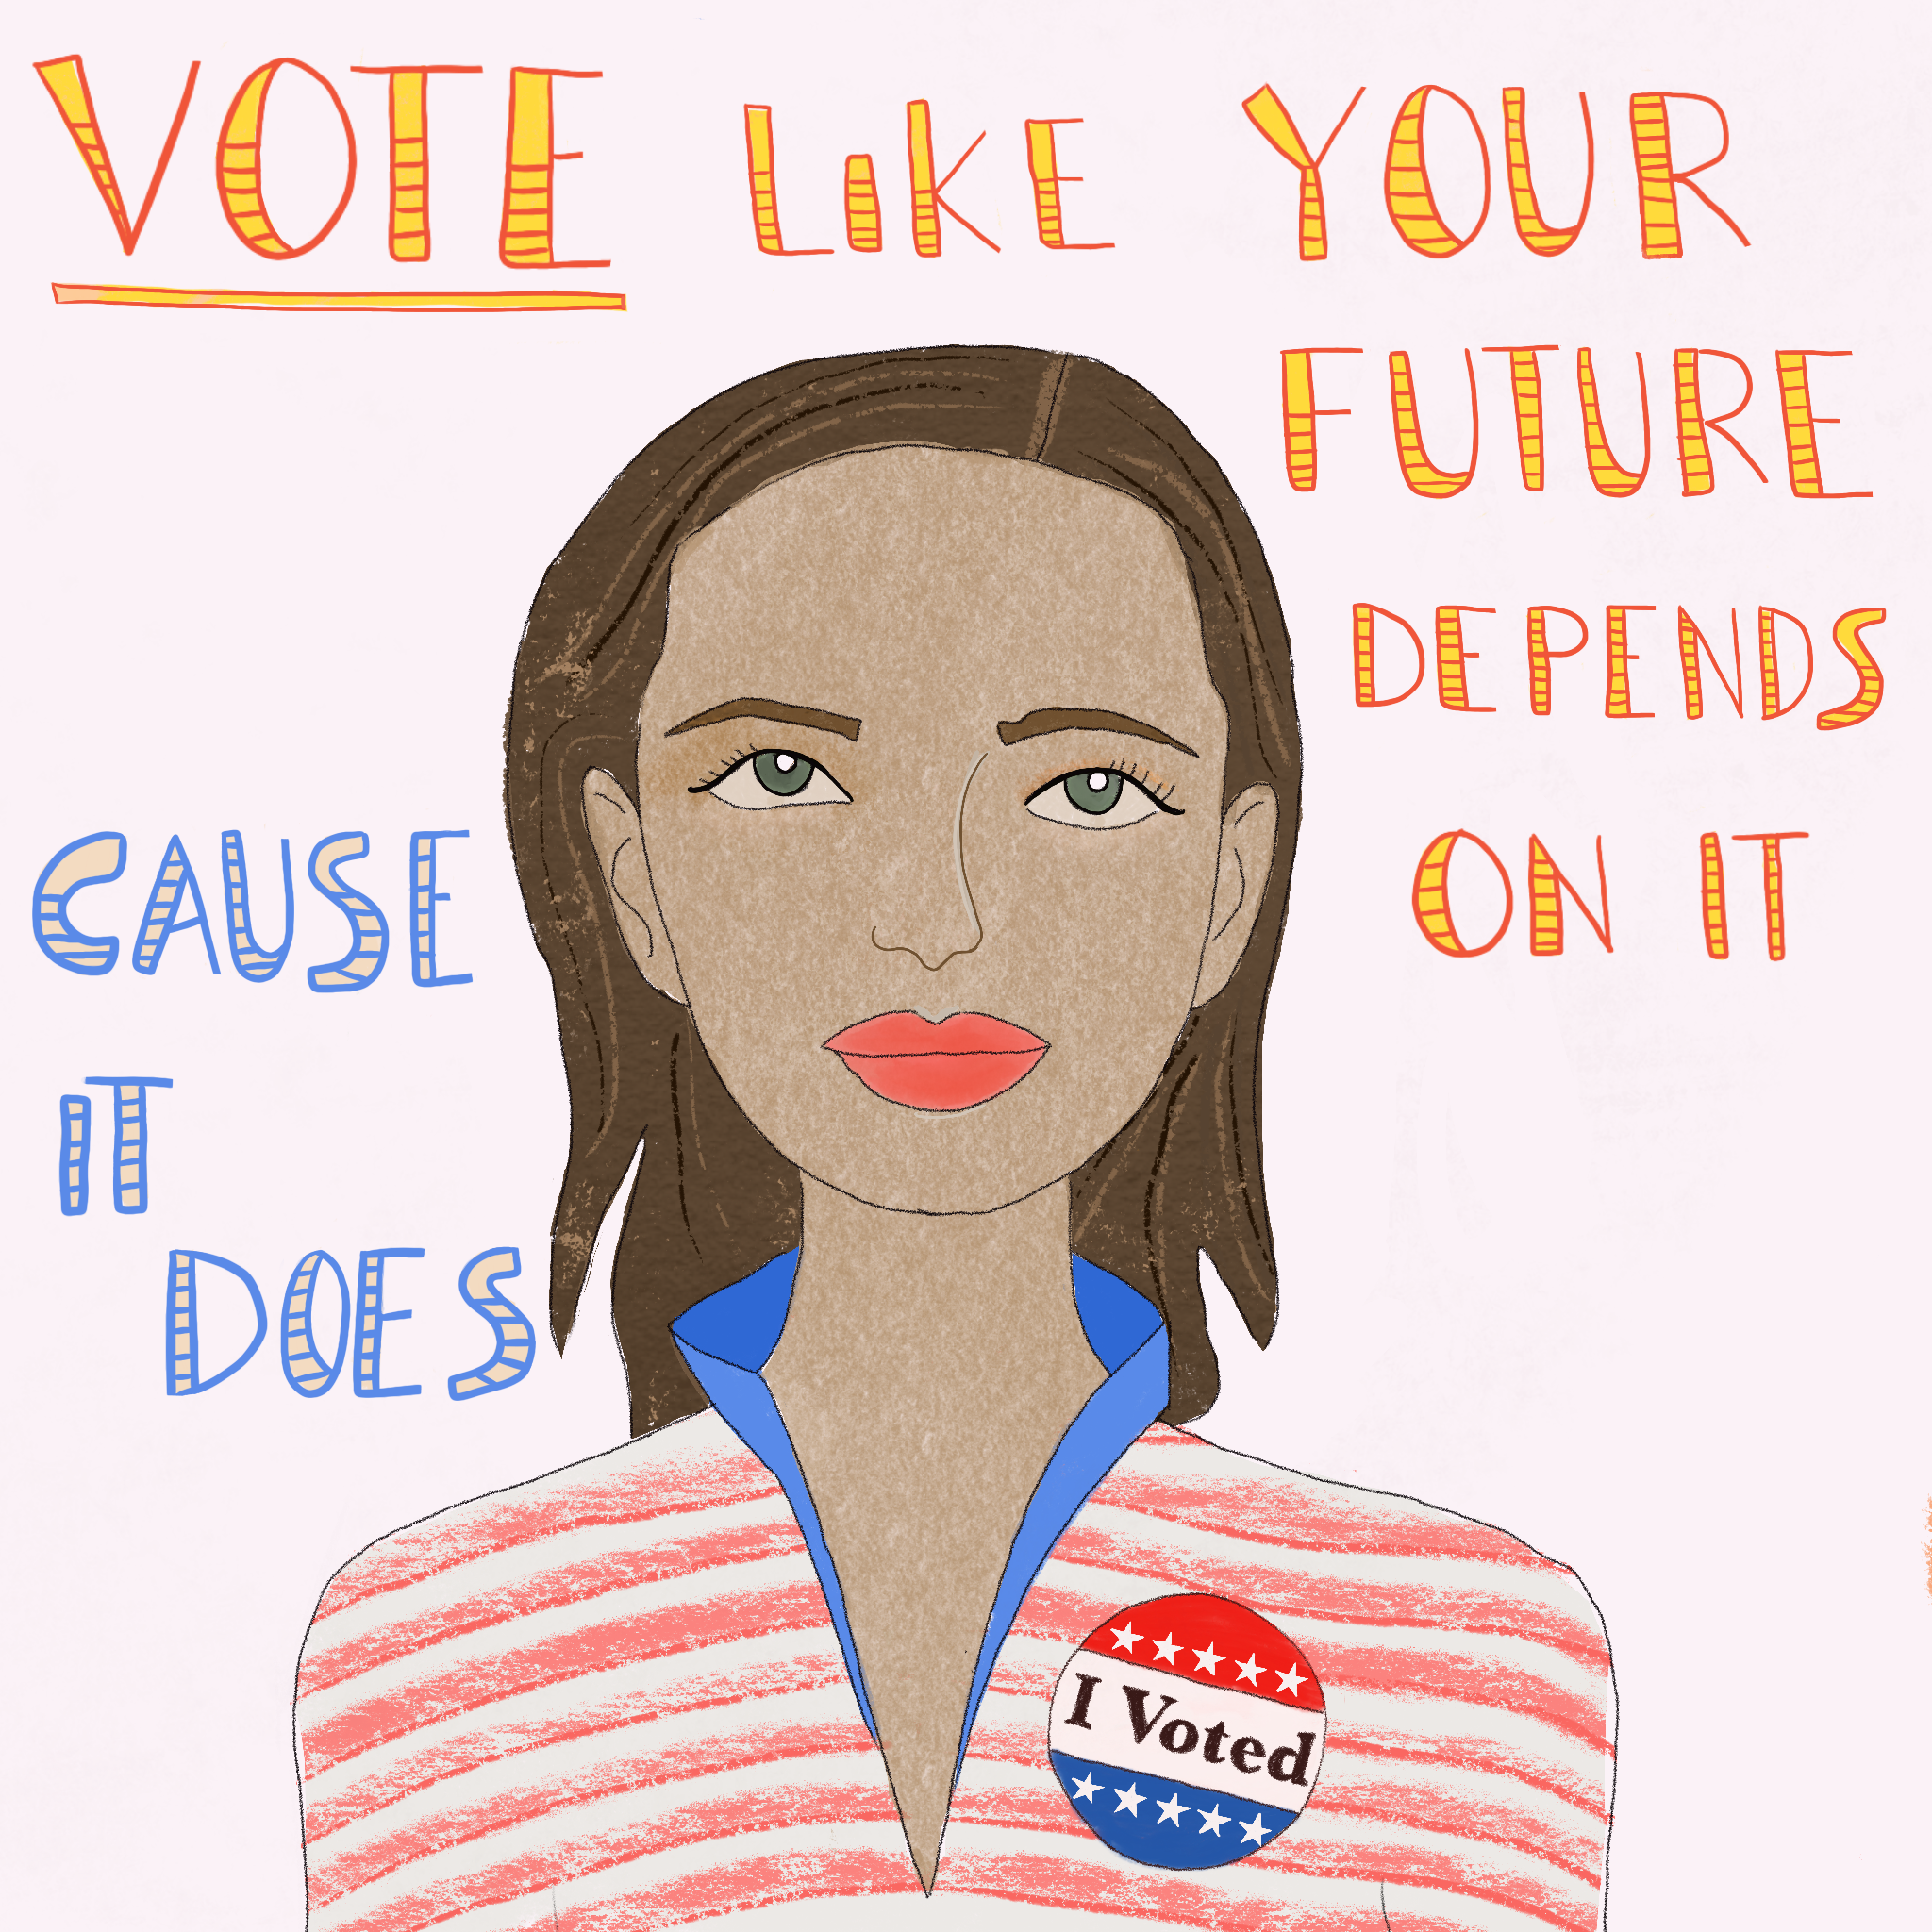 VOTE LiKE YOUR
FUTURE
DEPENDS
ON IT
CAUSE
IT
DOES
I Voted